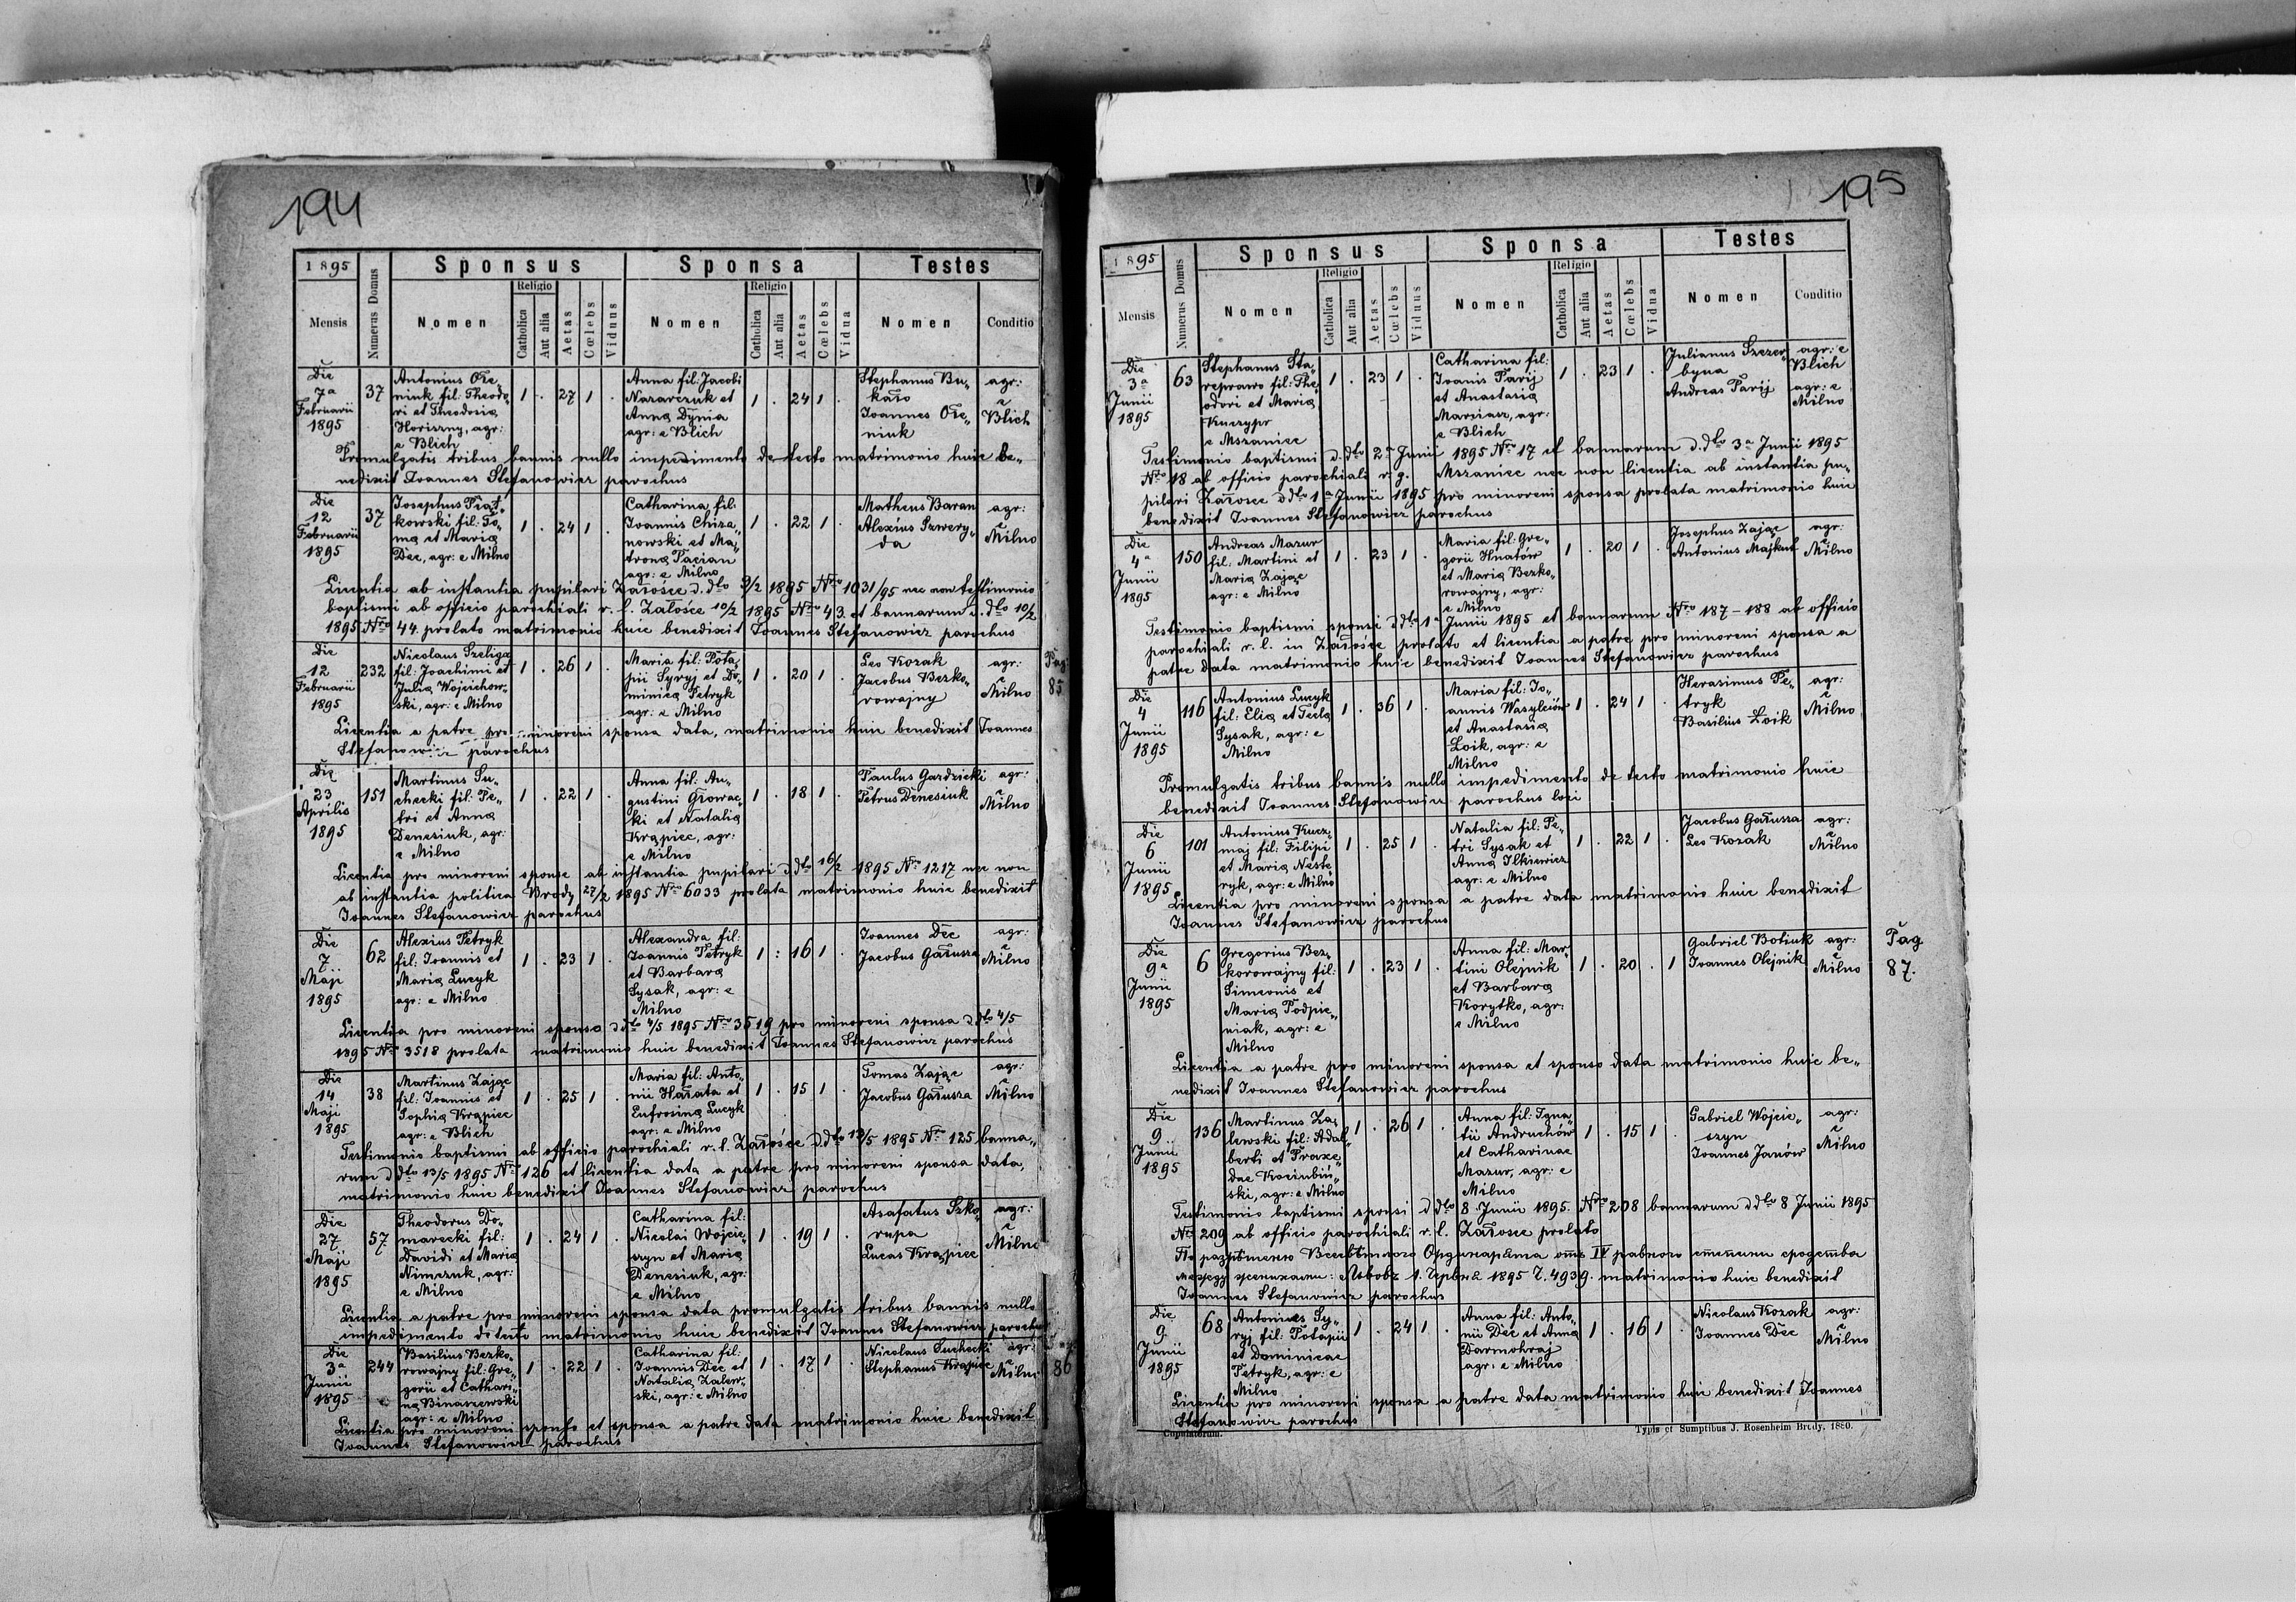 194
1895
Sponsus
Sponsa
Testes
Mensis
Numerus Domus
Nomen
Religio
Catholica
Aut alia
Aetas
Cœlebs
Viduus
Nomen
Religio
Catholica
Aut alia
Aetas
Cœlebs
Vidua
Nomen
Conditio
Die
7a
Februarii
1895
37
Antonius
niuk fil: Theodo„
ri et Theodosia
Horiszny, agr:
e Blich
1 . 27 1 .
Anna fil: Jacobi
Nazarczuk et
Anna Dynia
agr: e Blich
1 . 24 1 .
Stephanus Bu„
kało
Joannes
niuk
agr:
e
Blich
Promulgatis tribus bannis nullo impedimento detecto matrimonio huic be„
nedixit Joannes Stefanowicz parochus
Die
12
Februarii
1895
37
Josephus Piąt„
kowski fil: To„
ma et Maria
Dec, agr: e Milno
1 . 24 1 .
Catharina fil:
Joannis Chiza„
nowski et Ma„
trona Pacian
agr: e Milno
1 . 22 1 .
Matheus Baran
Alexius Szwery„
da
agr:
e
Milno
Licentia ab instantia pupilari Załośce d. dto 9/2 1895 Nro 1031/95 nec non testimonio
baptismi ab officio parochiali r. l. Załośce 10/2 1895 Nro 43. et bannarum d. dto 10/2
1895 Nro 44. prolato matrimonio huic benedixit Joannes Stefanowicz parochus
Die
12
Februarii
1895
232
Nicolaus Szeliga
fil: Joachimi et
Julia Wojcichow„
ski, agr: e Milno
1 . 26 1 .
Maria fil: Pota„
pii Syryj et Do„
minica Petryk
agr: e Milno
1 . 20 1 .
Leo Kozak
Jacobus Bezko„
rowajny
agr:
e
Milno
Pag
85
Licentia a patre pro minoreni sponsa data, matrimonio huic benedixit Joannes
Stefanowicz parochus
Die
23
Aprilis
1895
151
Martinus Su„
checki fil: Pe„
tri et Anna
Denesiuk, agr:
e Milno
1 . 22 1 .
Anna fil: Au„
gustini Głowac„
ki et Natalia
Krąpiec, agr:
e Milno
1 . 18 1 .
Paulus Gardzicki
Petrus Denesiuk
agr:
e
Milno
Licentia pro minoreni sponse ab instantia pupilari d dto 16/2 1895 Nro 1217 nec non
ab instantia politica Brody 27/2 1895 Nro 6033 prolata matrimonio huic benedixit
Joannes Stefanowicz parochus
Die
7
Maji
1895
62
Alexius Petryk
fil: Joannis et
Maria Lucyk
agr: e Milno
1 . 23 1 .
Alexandra fil:
Joannis Petryk
et Barbara
Sysak, agr: e
Milno
1 : 16 1 .
Joannes Dec
Jacobus Gałusza
agr:
e
Milno
Licentia pro minoreni sponso d dto 4/5 1895 Nro 3519 pro minoreni sponsa d dto 4/5
1895 Nro 3518 prolata matrimonio huic benedixit Joannes Stefanowicz parochus
Die
14
Maji
1895
38
Martinus Zając
fil: Joannis et
Sophia Krąpiec
agr: e Blich
1 . 25 1 .
Maria fil: Anto„
nii Hałata et
Eufrosina Lucyk
agr: e Milno
1 . 15 1 .
Tomas Zając
Jacobus Gałusza
agr:
e
Milno
Testimonio baptismi ab officio parochiali r. l. Załośce d. dto 13/5 1895 Nro 125 banna„
rum d dto 13/5 1895 Nro 126 et licentia data a patre pro minoreni sponsa data,
matrimonio huic benedixit Joannes Stefanowicz parochus
Die
27
Maji
1895
57
Theodorus Do„
marecki fil:
Dawidi et Maria
Nimczuk, agr:
e Milno
1 . 24 1 .
Catharina fil:
Nicolai Wojcie„
szyn et Maria
Denesiuk, agr:
e Milno
1 . 19 1 .
Asafatus Szko„
rupa
Lucas Krąpiec
agr:
e
Milno
Licentia a patre pro minoreni sponsa data promulgatis tribus bannis nullo
impedimento detecto matrimonio huic benedixit Joannes Stefanowicz parochus
Die
3a
Junii
1895
244
Basilius Bezko„
rowajny fil: Gre„
gorii et Cathari„
na Binaszewski
agr: e Milno
1 . 22 1 .
Catharina fil:
Joannis Dec et
Natalia Zalew„
ski, agr: e Milno
1 . 17 1 .
Nicolaus Suchecki
Stephanus Krąpiec
agr:
e
Milno
86
Licentia pro minoreni sponso et sponsa a patre data matrimonio huic benedixit
Joannes Stefanowicz parochus
195
1895
Sponsus
Sponsa
Testes
Mensis
Numerus Domus
Nomen
Religio
Catholica
Aut alia
Aetas
Cœlebs
Viduus
Nomen
Religio
Catholica
Aut alia
Aetas
Cœlebs
Vidua
Nomen
Conditio
Die
3a
Junii
1895
63
Stephanus Sta„
reprawo fil: The„
odori et Maria
Kuczypr
e Mszaniec
1 . 23 1 .
Catharina fil:
Joanis Parij
et Anastasia
Marciasz, agr:
e Blich
1 . 23 1 .
Julianus Szczer„
byna
Andreas Parij
agr: e
Blich
agr: e
Milno
Testimonio baptismi d. dto 2a Junii 1895 Nro 17 et bannarum d dto 3a Junii 1895
Nro 18 ab officio parochiali r. g. Mszaniec nec non licentia ab instantia pu„
pilari Załosce d dto 1a Junii 1895 pro minoreni sponsa prolata matrimonio huic
benedixit Joannes Stefanowicz parochus
Die
4a
Junii
1895
150
Andreas Mazur
fil: Martini et
Maria Zając
agr: e Milno
1 . 23 1 .
Maria fil: Gre„
gorii Hnatów
et Maria Bezko„
rowajny, agr:
e Milno
1 . 20 1 .
Josephus Zając
Antonius Majkut
agr:
e
Milno
Testimonio baptismi sponsi d dto 1a Junii 1895 et bannarum Nro 187–188 ab officio
parochiali r. l. in Załośce prolato et licentia a patre pro minoreni sponsa a
patre data matrimonio huic benedixit Joannes Stefanowicz parochus
Die
4
Junii
1895
116
Antonius Lucyk
fil: Elia et Tecla
Sysak, agr: e
Milno
1 . 36 1 .
Maria fil: Jo„
annis Wasylciów
et Anastasia
Loik, agr: e
Milno
1 . 24 1 .
Herasimus Pe„
tryk
Basilius Loik
agr:
e
Milno
Promulgatis tribus bannis nullo impedimento detecto matrimonio huic
benedixit Joannes Stefanowicz parochus loci
Die
6
Junii
1895
101
Antonius Kucz„
maj fil: Filipi
et Maria Neste„
ryk, agr: e Milno
1 . 25 1 .
Natalia fil: Pe„
tri Sysak et
Anna Ilkiewicz
agr: e Milno
1 . 22 1 .
Jacobus Gałusza
Leo Kozak
agr:
e
Milno
Licentia pro minoreni sponsa a patre data matrimonio huic benedixit
Joannes Stefanowicz parochus
Die
9a
Junii
1895
6
Gregorius Bez„
korowajny fil:
Simeonis et
Maria Podpie„
niak, agr: e
Milno
1 . 23 1 .
Anna fil: Mar„
tini Olejnik
et Barbara
Korytko, agr:
e Milno
1 . 20 . 1
Gabriel Botiuk
Joannes Olejnik
agr:
e
Milno
Pag
87.
Licentia a patre pro minoreni sponsa et sponso data matrimonio huic be„
nedixit Joannes Stefanowicz parochus
Die
9
Junii
1895
136
Martinus Za„
lewski fil: Adal„
berti et Praxe„
dae Kociubiń„
ski, agr: e Milno
1 . 26 1 .
Anna fil: Igna„
tii Andruchów
et Catharinae
Mazur, agr: e
Milno
1 . 15 1 .
Gabriel Wojcie„
szyn
Joannes Janów
agr:
e
Milno
Testimonio baptismi sponsi d dto 8 Junii 1895. Nro 208 bannarum d dto 8 Junii 1895
Nro 209 ab officio parochiali r. l. Załosce prolato
По разрѣшенію Всесвѣтлого Ординаріята отъ IV равного степени сродства
межеду женихами: Львовъ 1. Червня 1895 Ч. 4939. matrimonio huic benedixit
Joannes Stefanowicz parochus
Die
9
Junii
1895
68
Antonius Sy„
ryj fil: Potapii
et Dominicae
Petryk, agr: e
Milno
1 . 24 1 .
Anna fil: Anto„
nii Dec et Anna
Darmohraj
agr: e Milno
1 . 16 1 .
Nicolaus Kozak
Joannes Dec
agr:
e
Milno
Licentia pro minoreni sponsa a patre data matrimonio huic benedixit Joannes
Stefanowicz parochus
Copulatorum.
Typis et Sumptibus J. Rosenheim Brody, 1880.